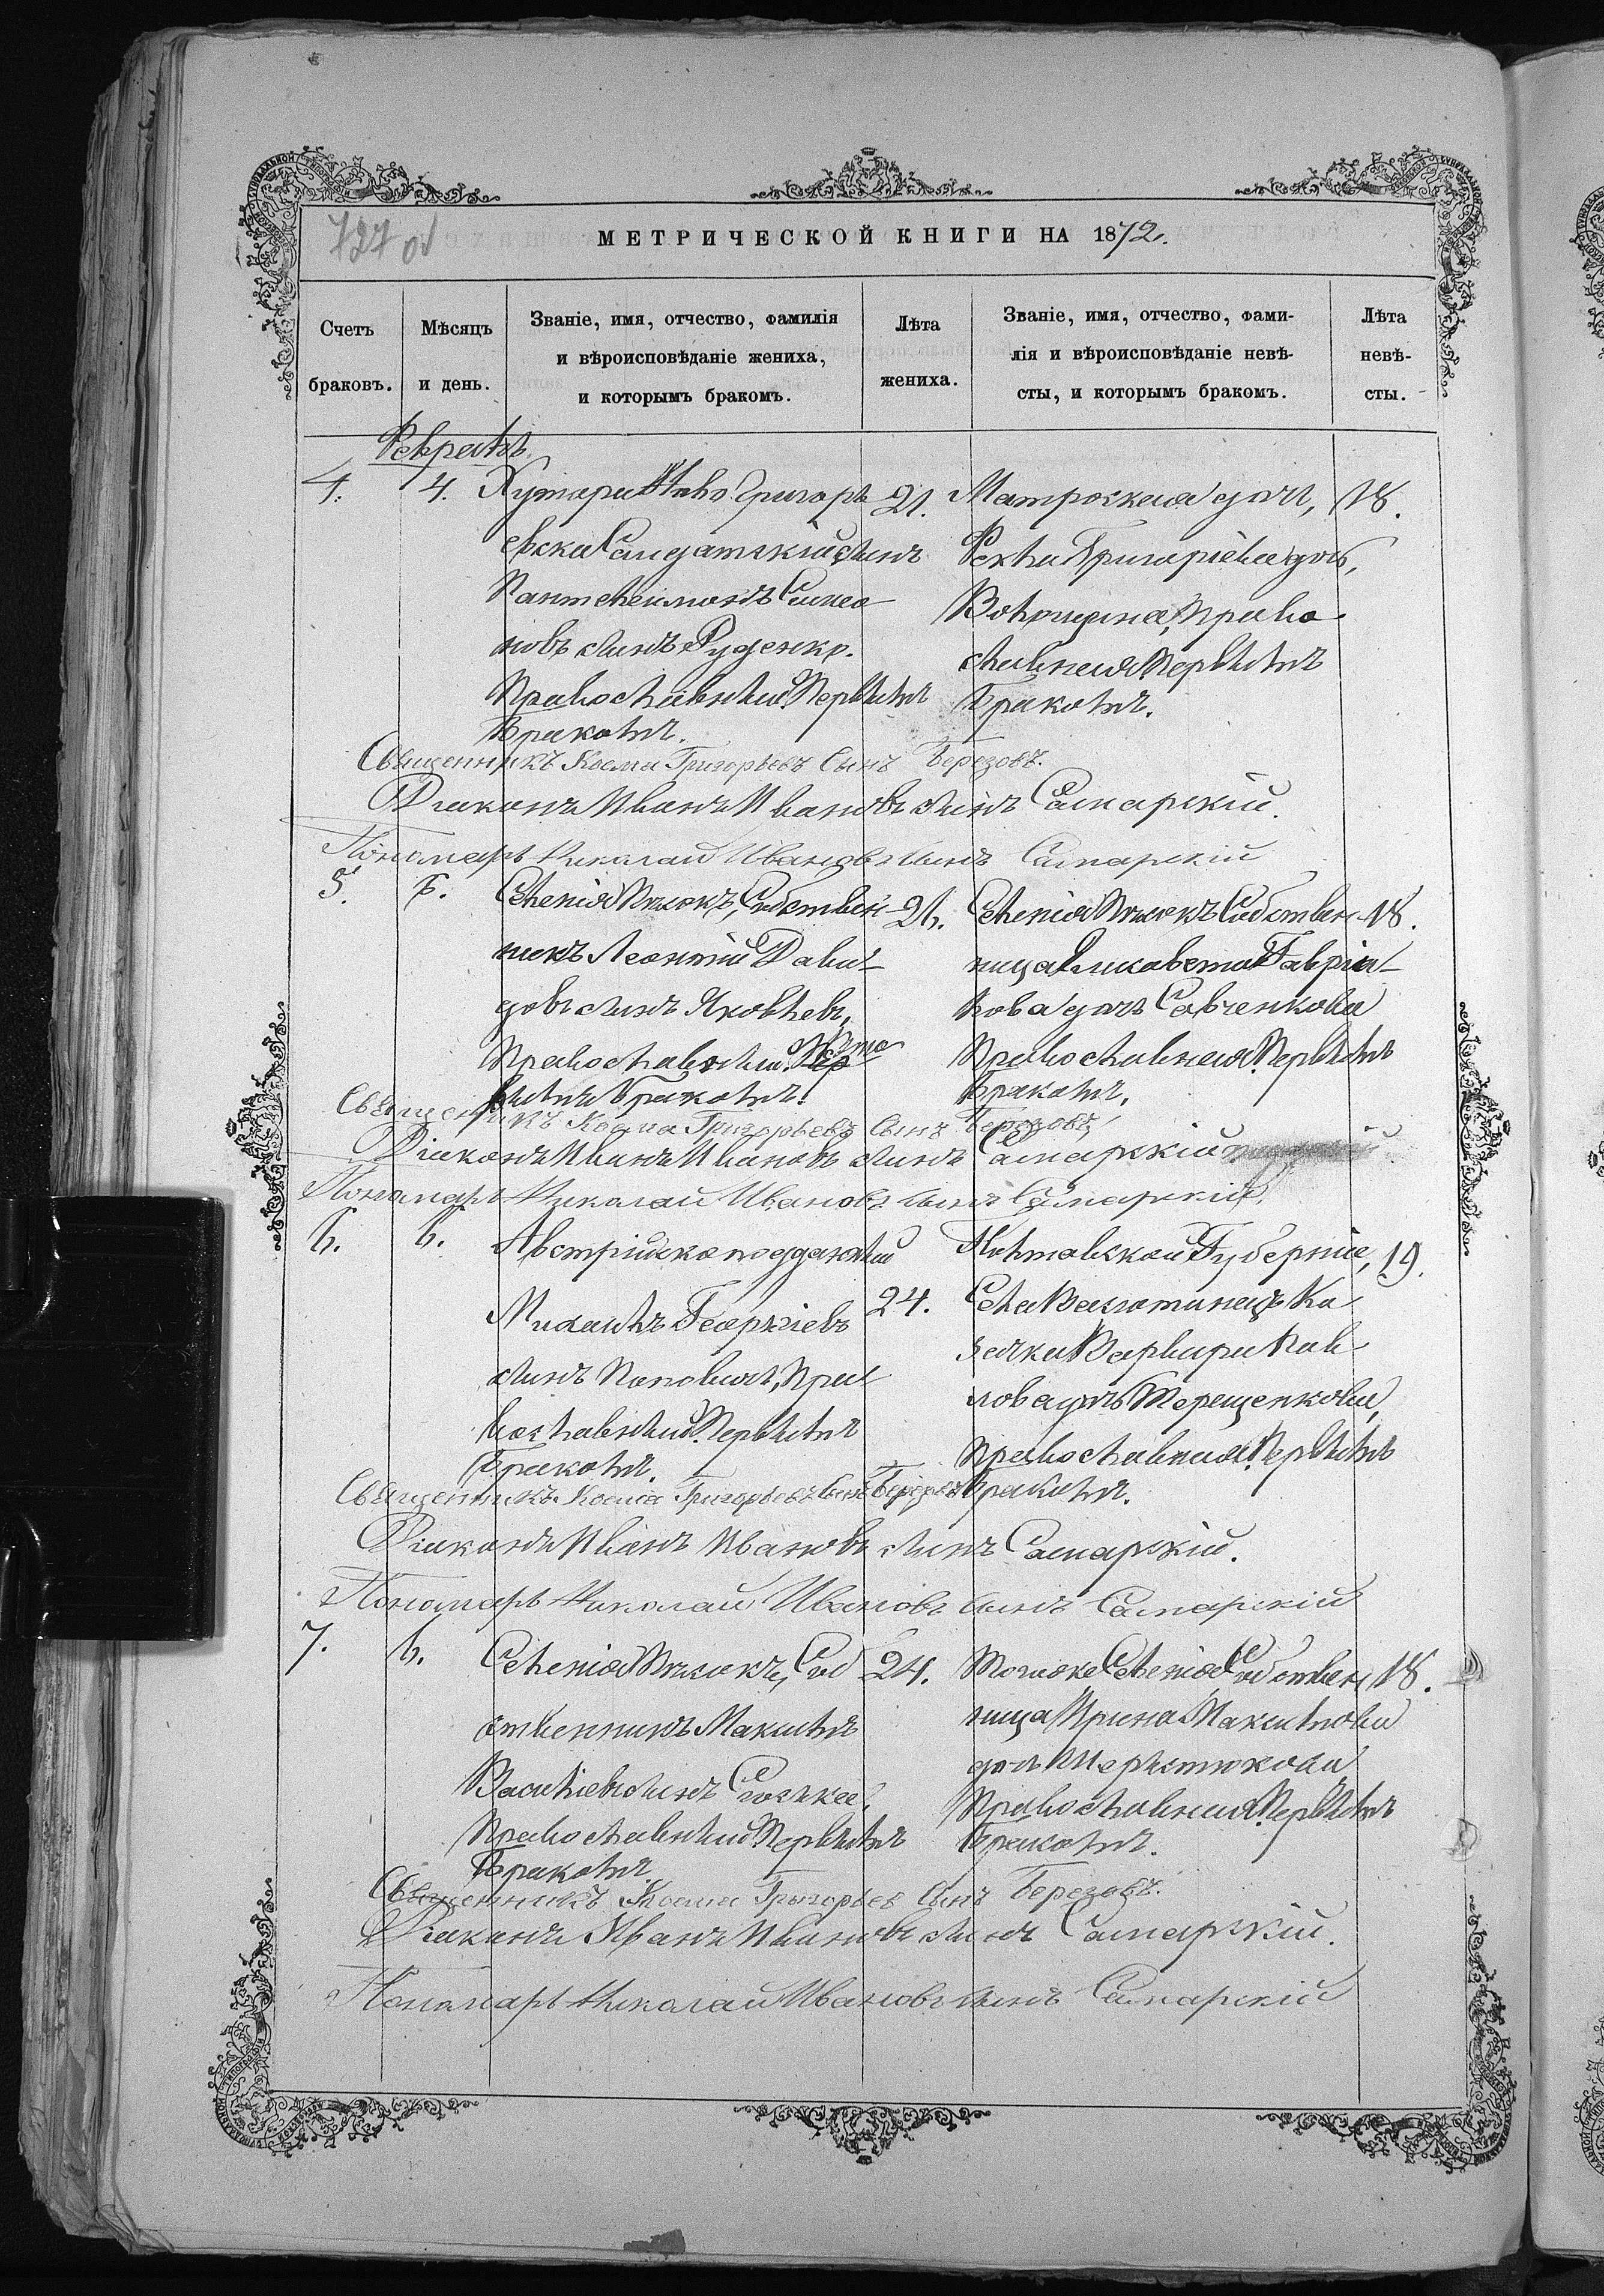 727 об
МЕТРИЧЕСКОЙ КНИГИ НА 1872.
Счетъ браковъ.
Мѣсяцъ и день.
Званіе, имя, отчество, фамилія
и вѣроисповѣданіе жениха,
и которымъ бракомъ.
Лѣта жениха.
Званіе, имя, отчество, фами-
лія и вѣроисповѣданіе невѣ-
сты, и которымъ бракомъ.
Лѣта невѣ-
сты.
Февраль
4. 4.
Хутора Григорь
евска Салдатскій сынъ
Пантелеимонъ Симео
новъ сынъ Руденко.
Православный. Первымъ
бракомъ.
21.
Матроская дочь,
Фекла Григоріева дочь,
Право
славная. Первымъ
бракомъ.
18.
Священникъ Косма Григорьевъ Сынъ Березовъ.
Діаконъ Иванъ Ивановъ сынъ Самарскій.
Пономарь Николай Ивановъ сынъ Самарскій
5. 6.
Селенія Собствен
никъ Леонтій Дави-
довъ сынъ Яковлевъ,
Православный.
вымъ бракомъ.
21.
Селенія Собствен
ница Елисавета Гавріи-
лова дочь Савченкова
Православная. Первымъ
бракомъ.
18.
Священникъ Косма Григорьевъ Сынъ Березовъ,
Діаконъ Иванъ Ивановъ сынъ Самарскій
Пономарь Николай Ивановъ сынъ Самарскій
6. 6.
Австрійско подданный
Михаилъ Георгіевъ
сынъ Поповичъ, Пра
вославный. Первымъ
бракомъ.
24.
Полтавской Губерніи,
Села Ка
зачка Варвара Пав
лова дочь Терещенкова,
Православная. Первымъ
бракомъ.
19.
Священникъ Косма Григорьевъ Сынъ Березовъ
Діаконъ Иванъ Ивановъ сынъ Самарскій.
Пономарь Николай Ивановъ сынъ Самарскій
7. 6.
Селенія Соб
ственникъ Максимъ
Василіевъ сынъ
Православный. Первымъ
бракомъ
24.
Тогоже Селенія Собствен
ница Ирина Максимова
дочь Шерстюкова
Православная. Первымъ
бракомъ.
18.
Священникъ Косма Григорьев Сынъ Березовъ.
Діаконъ Иванъ Ивановъ сынъ Самарскій.
Пономарь Николай Ивановъ сынъ Самарскій